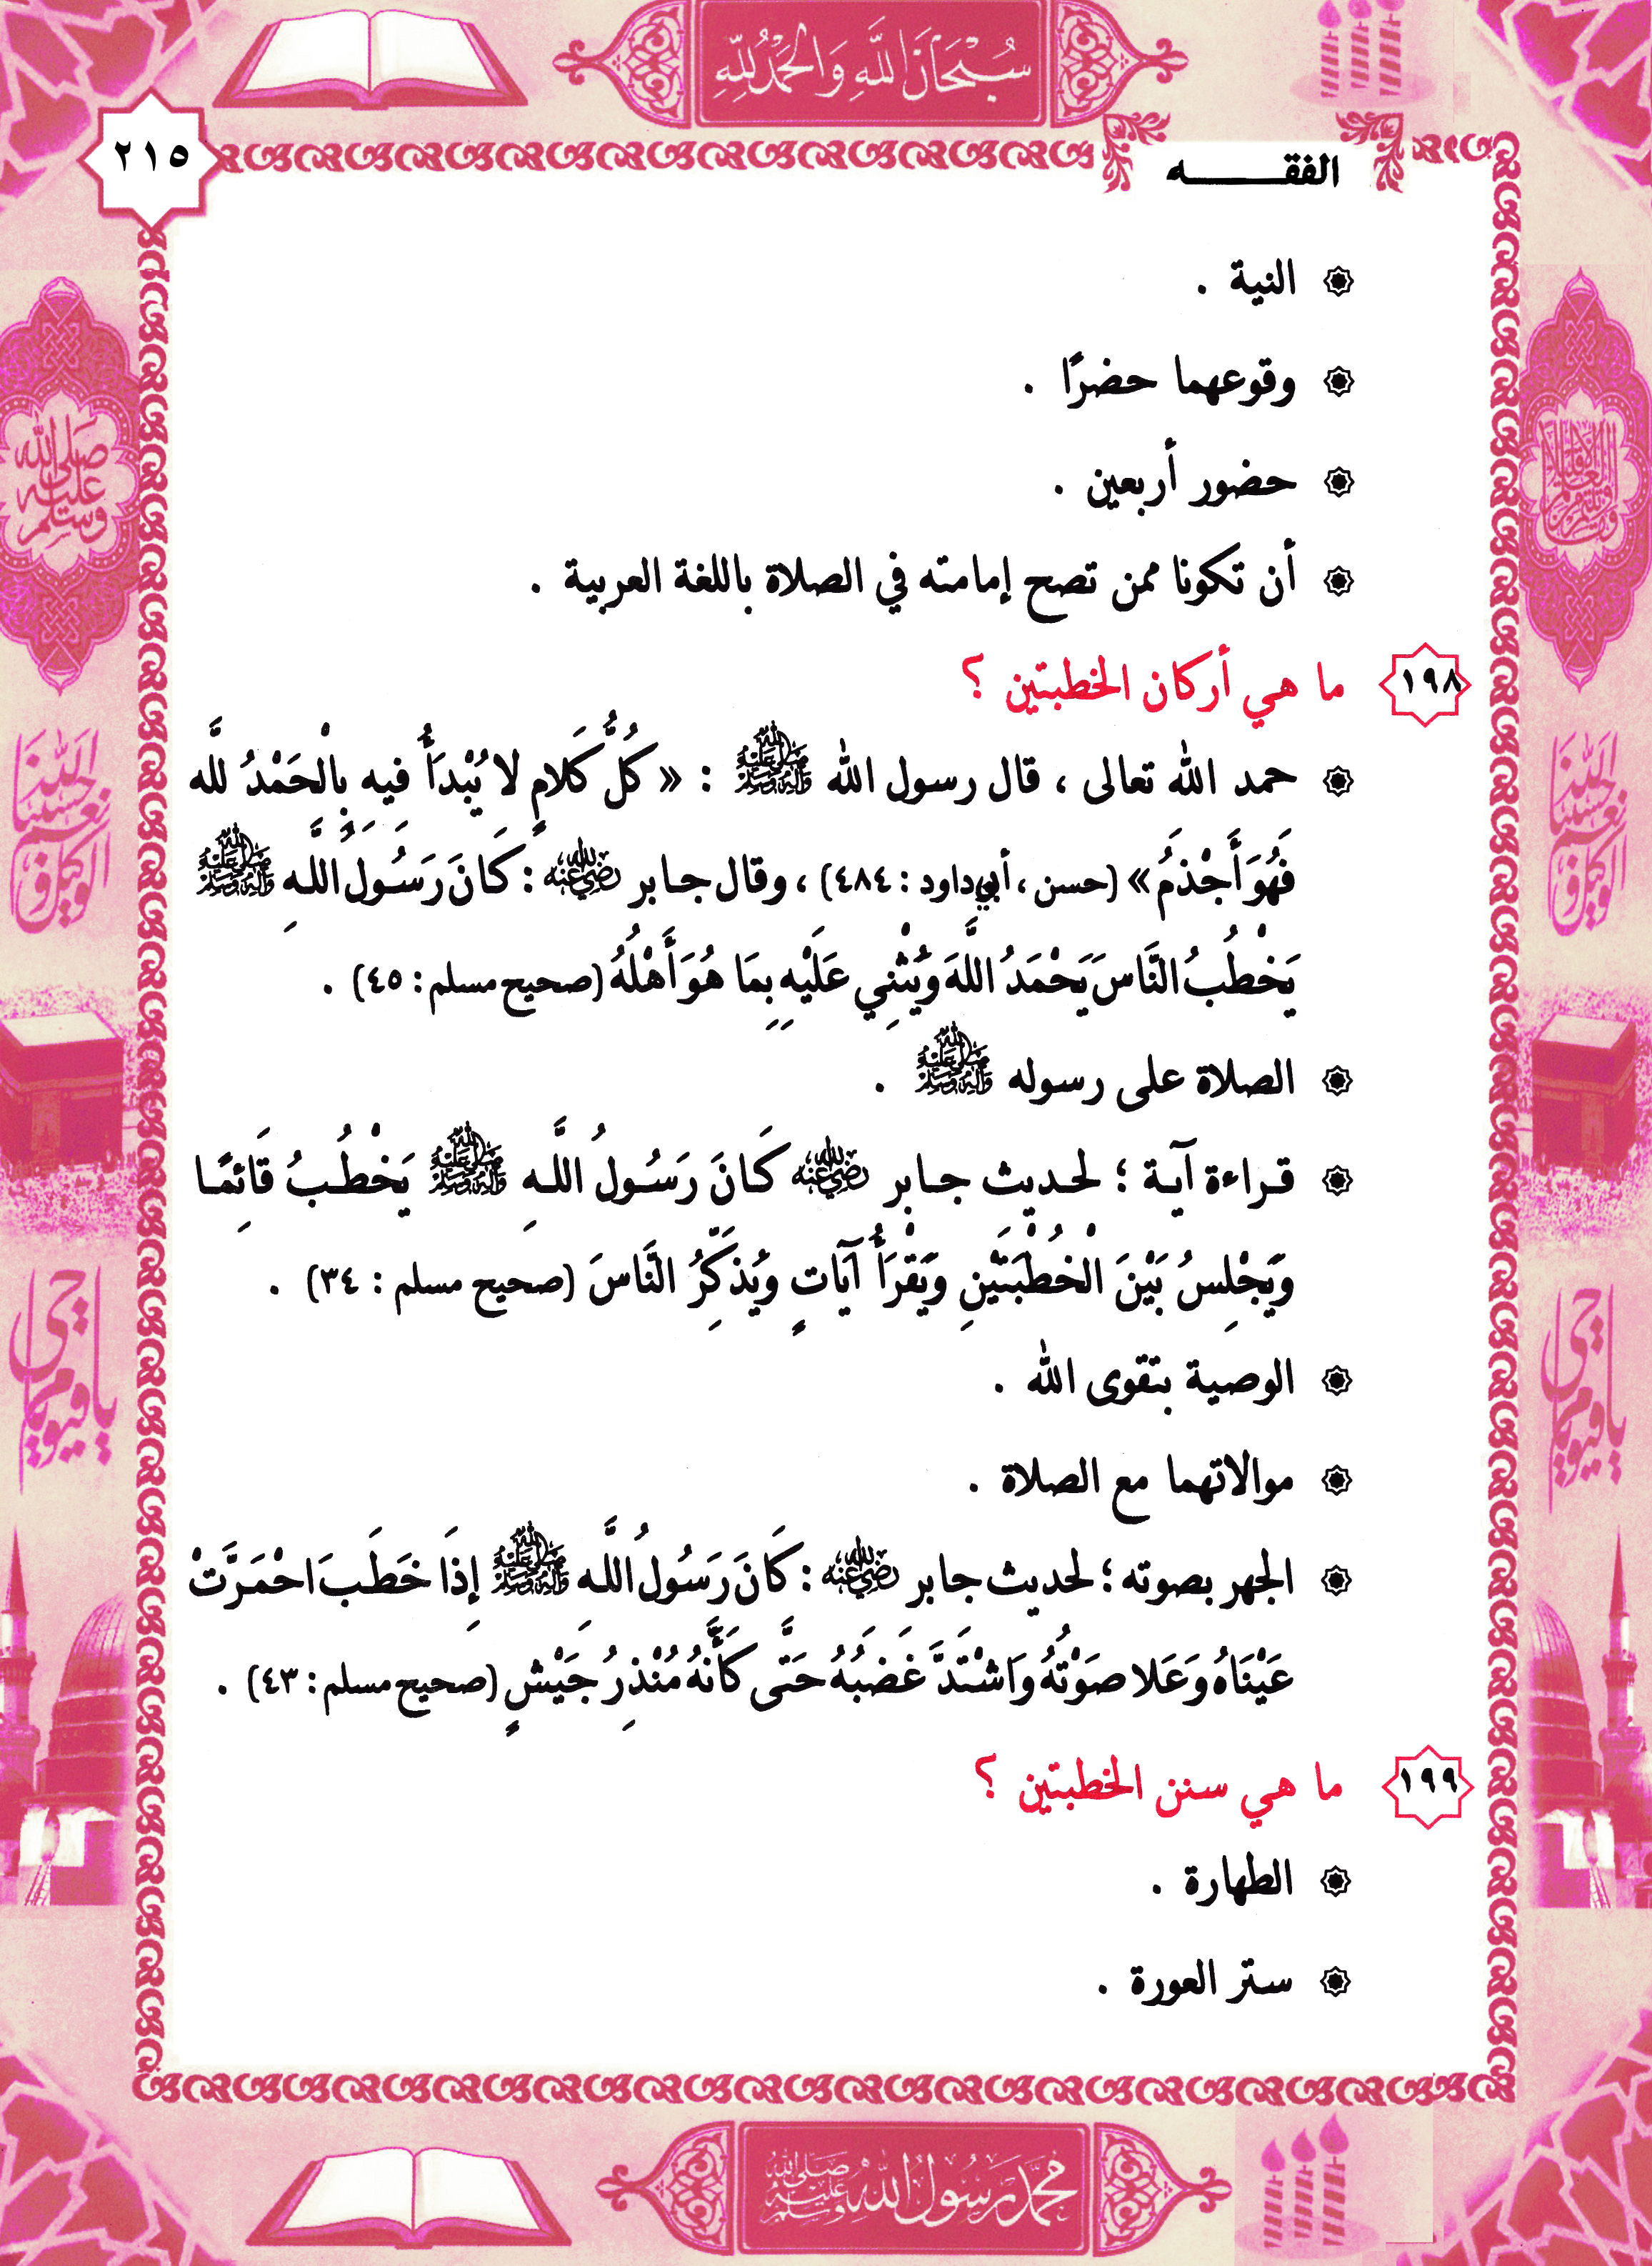 سُبْحَانَ اللَّهِ وَالْحَمْدُ لِلَّهِ
٢١٥
الفقـــــــه
النية .
وقوعهما حضرًا .
حضور أربعين .
أن تكونا ممن تصح إمامته في الصلاة باللغة العربية .
١٩٨ ما هي أركان الخطبتين ؟
حمد الله تعالى ، قال رسول الله ﷺ : « كُلُّ كَلامٍ لا يُبْدَأُ فِيهِ بِالْحَمْدُ للَّه
فَهُوَ أَجْذَمُ » (حسن ، أبي داود : ٤٨٤) ، وقال جـابر رضي الله عنه : كَانَ رَسُـولُ اللَّـهِ ﷺ
يَخْطُبُ النَّاسَ يَحْمَدُ اللَّهَ وَيُثْنِي عَلَيْهِ بِمَا هُوَ أَهْلُهُ (صحيح مسلم : ٤٥) .
الصلاة على رسوله ﷺ .
قـراءة آيـة ؛ لحـديث جـابر رضي الله عنه كَـانَ رَسُـولُ اللَّـهِ ﷺ يَخْطُـبُ قَائِمًـا
وَيَجْلِسُ بَيْنَ الْخُطْبَتَيْنِ وَيَقْرَأُ آيَاتٍ وَيُذَكِّرُ النَّاسَ (صحيح مسلم : ٣٤) .
الوصية بتقوى الله .
موالاتهما مع الصلاة .
الجهر بصوته ؛ لحديث جابر رضي الله عنه : كَانَ رَسُولُ اللَّـهِ ﷺ إِذَا خَطَبَ احْمَـرَّتْ
عَيْنَاهُ وَعَلا صَوْتُهُ وَاشْتَدَّ غَضَبُهُ حَتَّى كَأَنَّهُ مُنْذِرُ جَيْشٍ (صحيح مسلم : ٤٣) .
١٩٩ ما هي سنن الخطبتين ؟
الطهارة .
ستر العورة .
محمد رسول الله صلى الله عليه وسلم